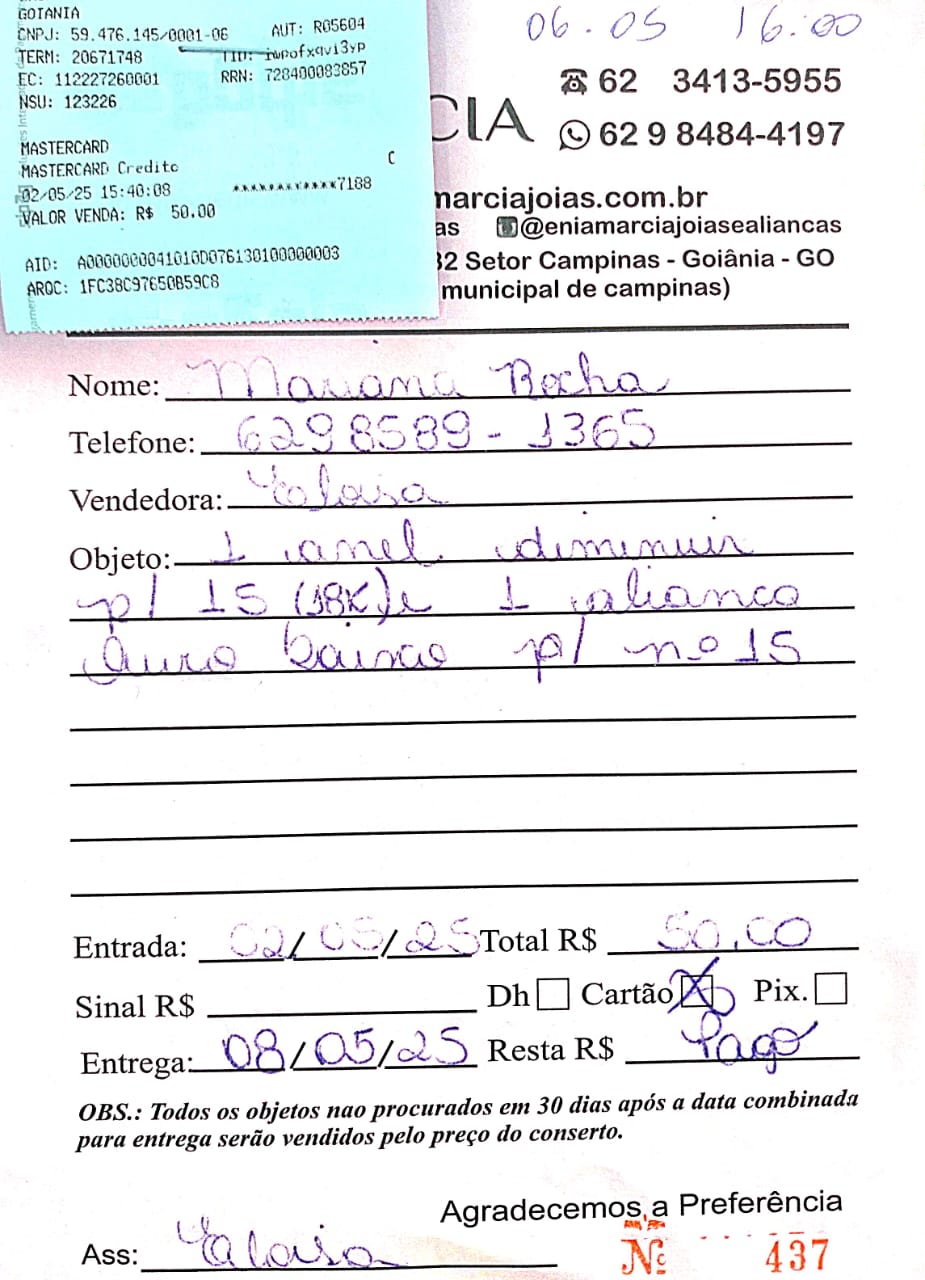 GOIANIA
CNPJ: 59.476.145/0001-06 AUT: R05604
TERM: 20671748 TID: iwpofxqvi3yp
EC: 112227260001 RRN: 728400083857
NSU: 123226
MASTERCARD
MASTERCARD Credito C
02/05/25 15:40:08 ************7188
VALOR VENDA: R$ 50.00
AID: A0000000041010D07613010000000003
ARQC: 1FC38C97650B59C8
06.05 16:00
62 3413-5955
CIA
62 9 8484-4197
marciajoias.com.br
as @eniamarciajoiasealiancas
32 Setor Campinas - Goiânia - GO
municipal de campinas)
Nome: Mariana Rocha
Telefone: 6298589-1365
Vendedora: Eloisa
Objeto: 1 anel diminuir
p/ 15 (18K) e 1 alianca
Ouro baixo p/ nº 15
Entrada: 02/05/25 Total R$ 50,00
Sinal R$ Dh Cartão Pix.
Entrega: 08/05/25 Resta R$ Pago
OBS.: Todos os objetos nao procurados em 30 dias após a data combinada
para entrega serão vendidos pelo preço do conserto.
Agradecemos a Preferência
Ass: Eloisa Nº 437